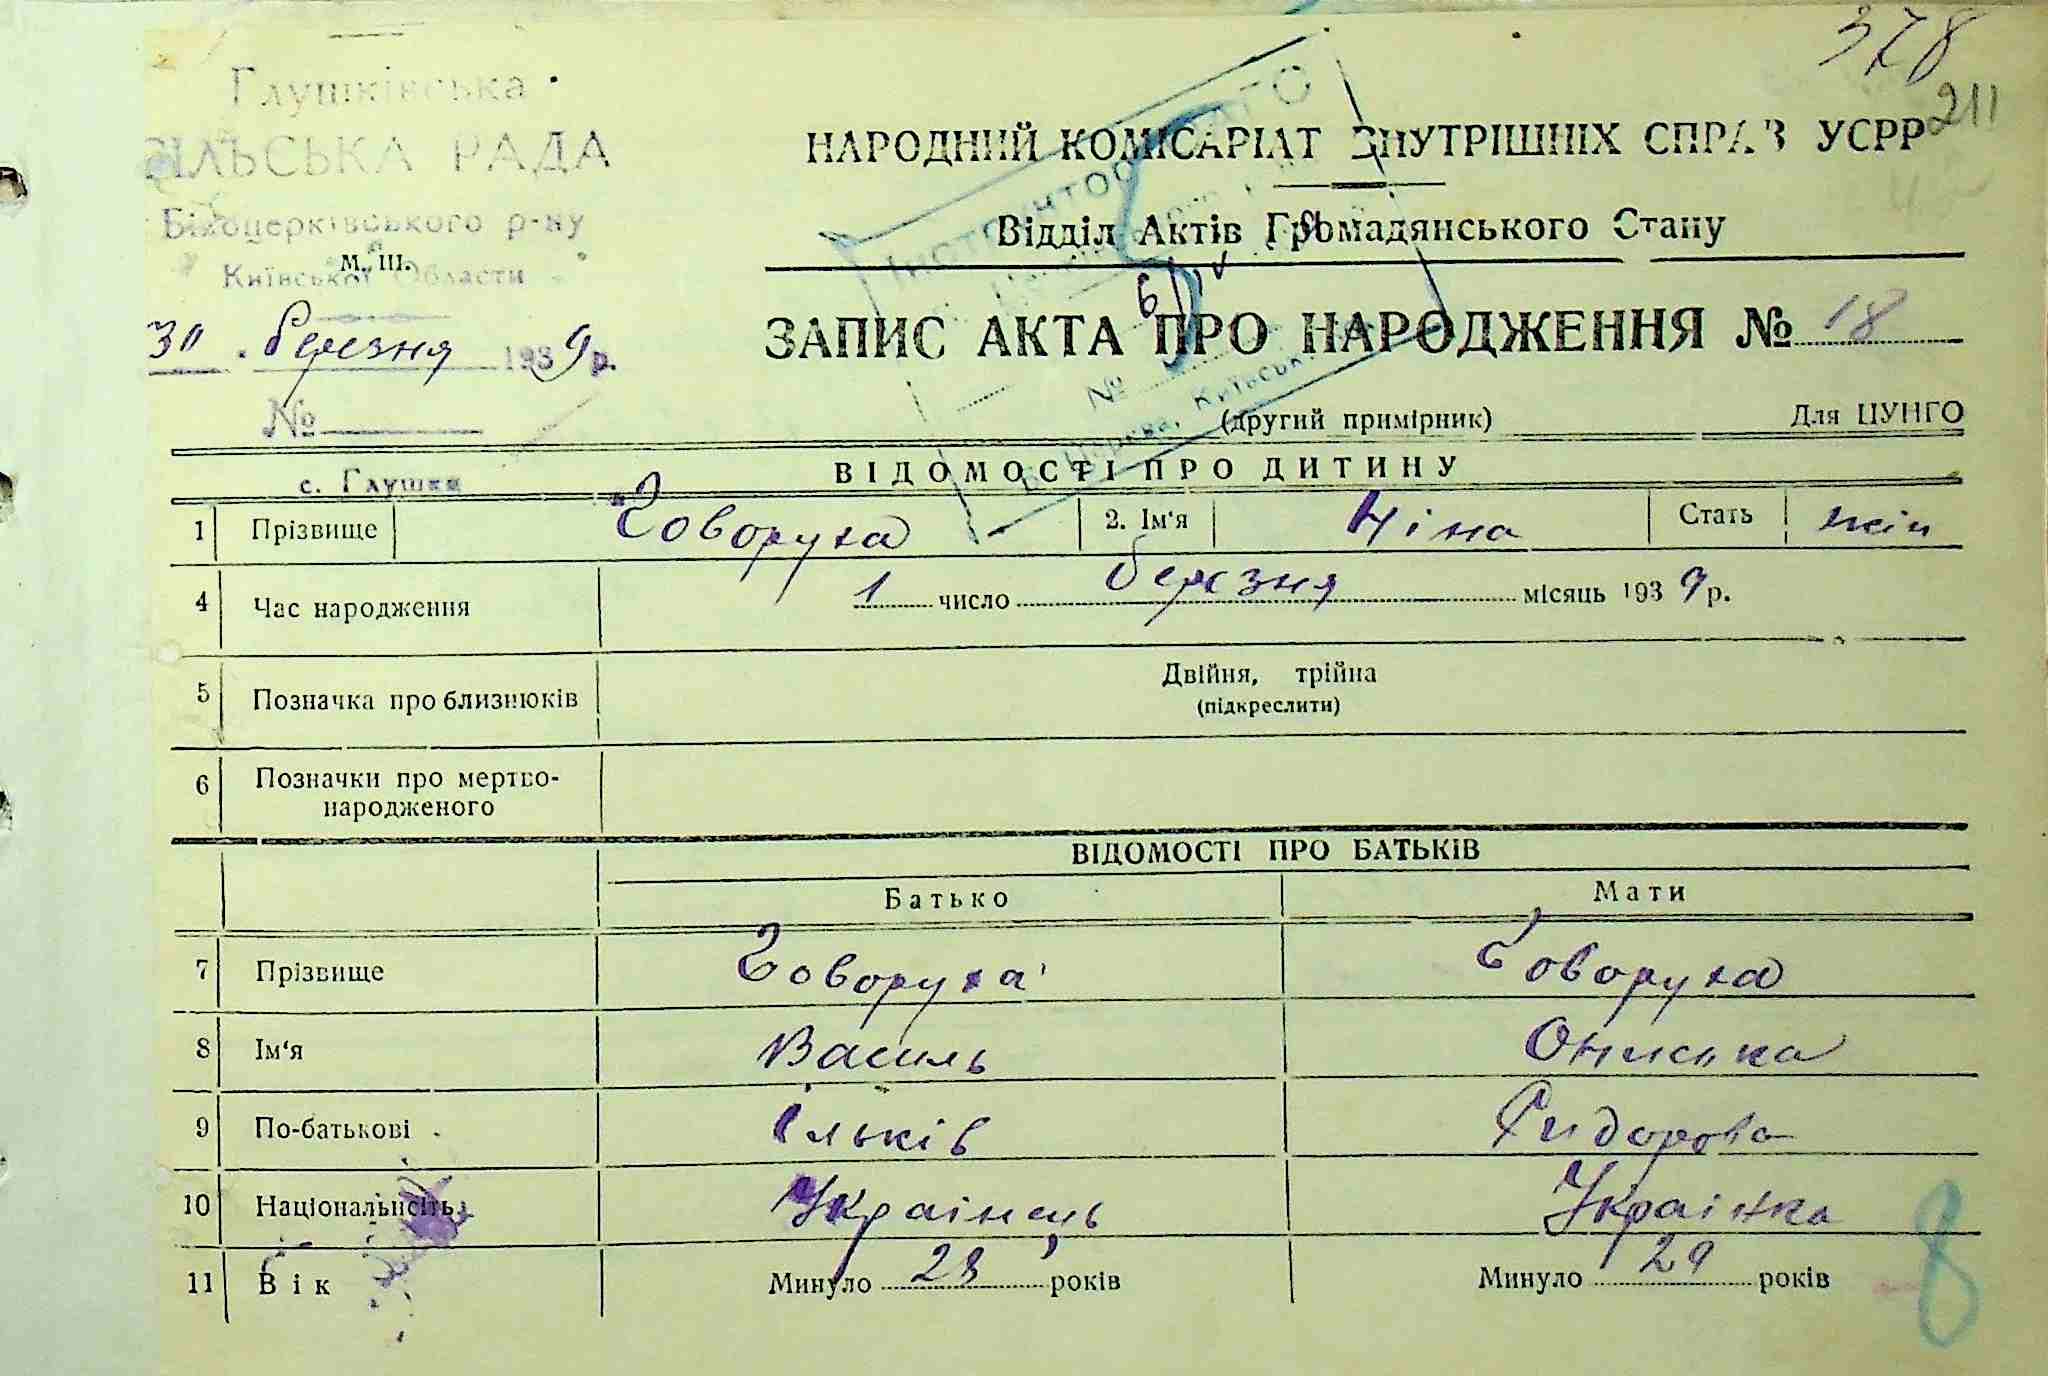 378
211
Глушківська
СІЛЬСЬКА РАДА
Білоцерківського р-ну
Київської Области
М. Ш.
30 березня 1939 р.
№
с. Глушки
НАРОДНИЙ КОМІСАРІАТ ВНУТРІШНІХ СПРАВ УСРР
Відділ Актів Громадянського Стану
ЗАПИС АКТА ПРО НАРОДЖЕННЯ № 18
(другий примірник) Для ЦУНГО
ВІДОМОСТІ ПРО ДИТИНУ
1 Прізвище Говоруха 2. Ім'я Ніна Стать жін
4 Час народження 1 число березня місяць 1939 р.
5 Позначка про близнюків Двійня, трійна
(підкреслити)
6 Позначки про мертво-
народженого
ВІДОМОСТІ ПРО БАТЬКІВ
Батько Мати
7 Прізвище Говоруха Говоруха
8 Ім'я Василь Ониська
9 По-батькові Ільків Сидорова
10 Національність Українець Українка
11 Вік Минуло 28 років Минуло 29 років
8